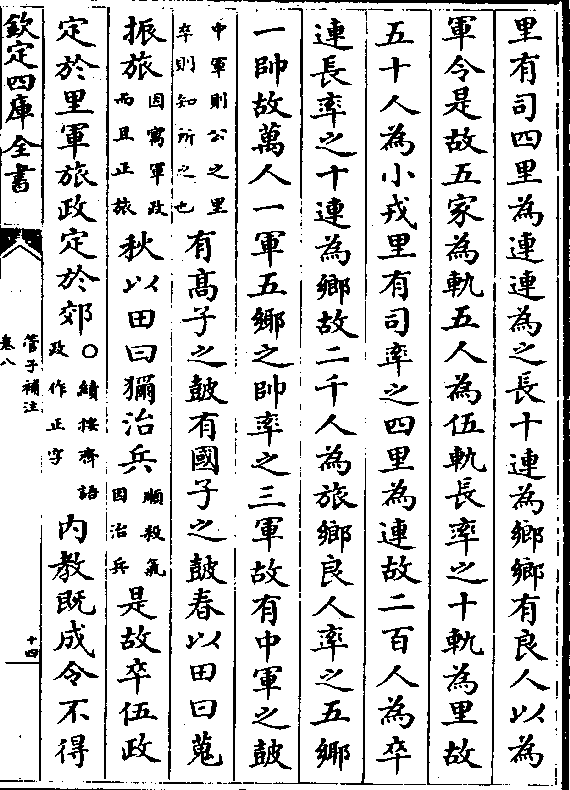 里有司四里為連連為之長十連為鄉鄉有良人以為
軍令是故五家為軌五人為伍軌長率之十軌為里故
五十人為小戎里有司率之四里為連故二百人為卒
連長率之十連為鄉故二千人為旅鄉良人率之五鄉
一帥故萬人一軍五鄉之帥率之三軍故有中軍之鼔
中軍則公之里
卒則知所之也
有髙子之鼔有國子之鼔春以田曰蒐
振旅
因寓軍政
而且正旅
秋以田曰獮治兵
順殺氣
因治兵
是故卒伍政
定於里軍旅政定於郊
○績按齊語
政作正字
內教既成令不得
欽定四庫全書
管子補注
卷八
十四